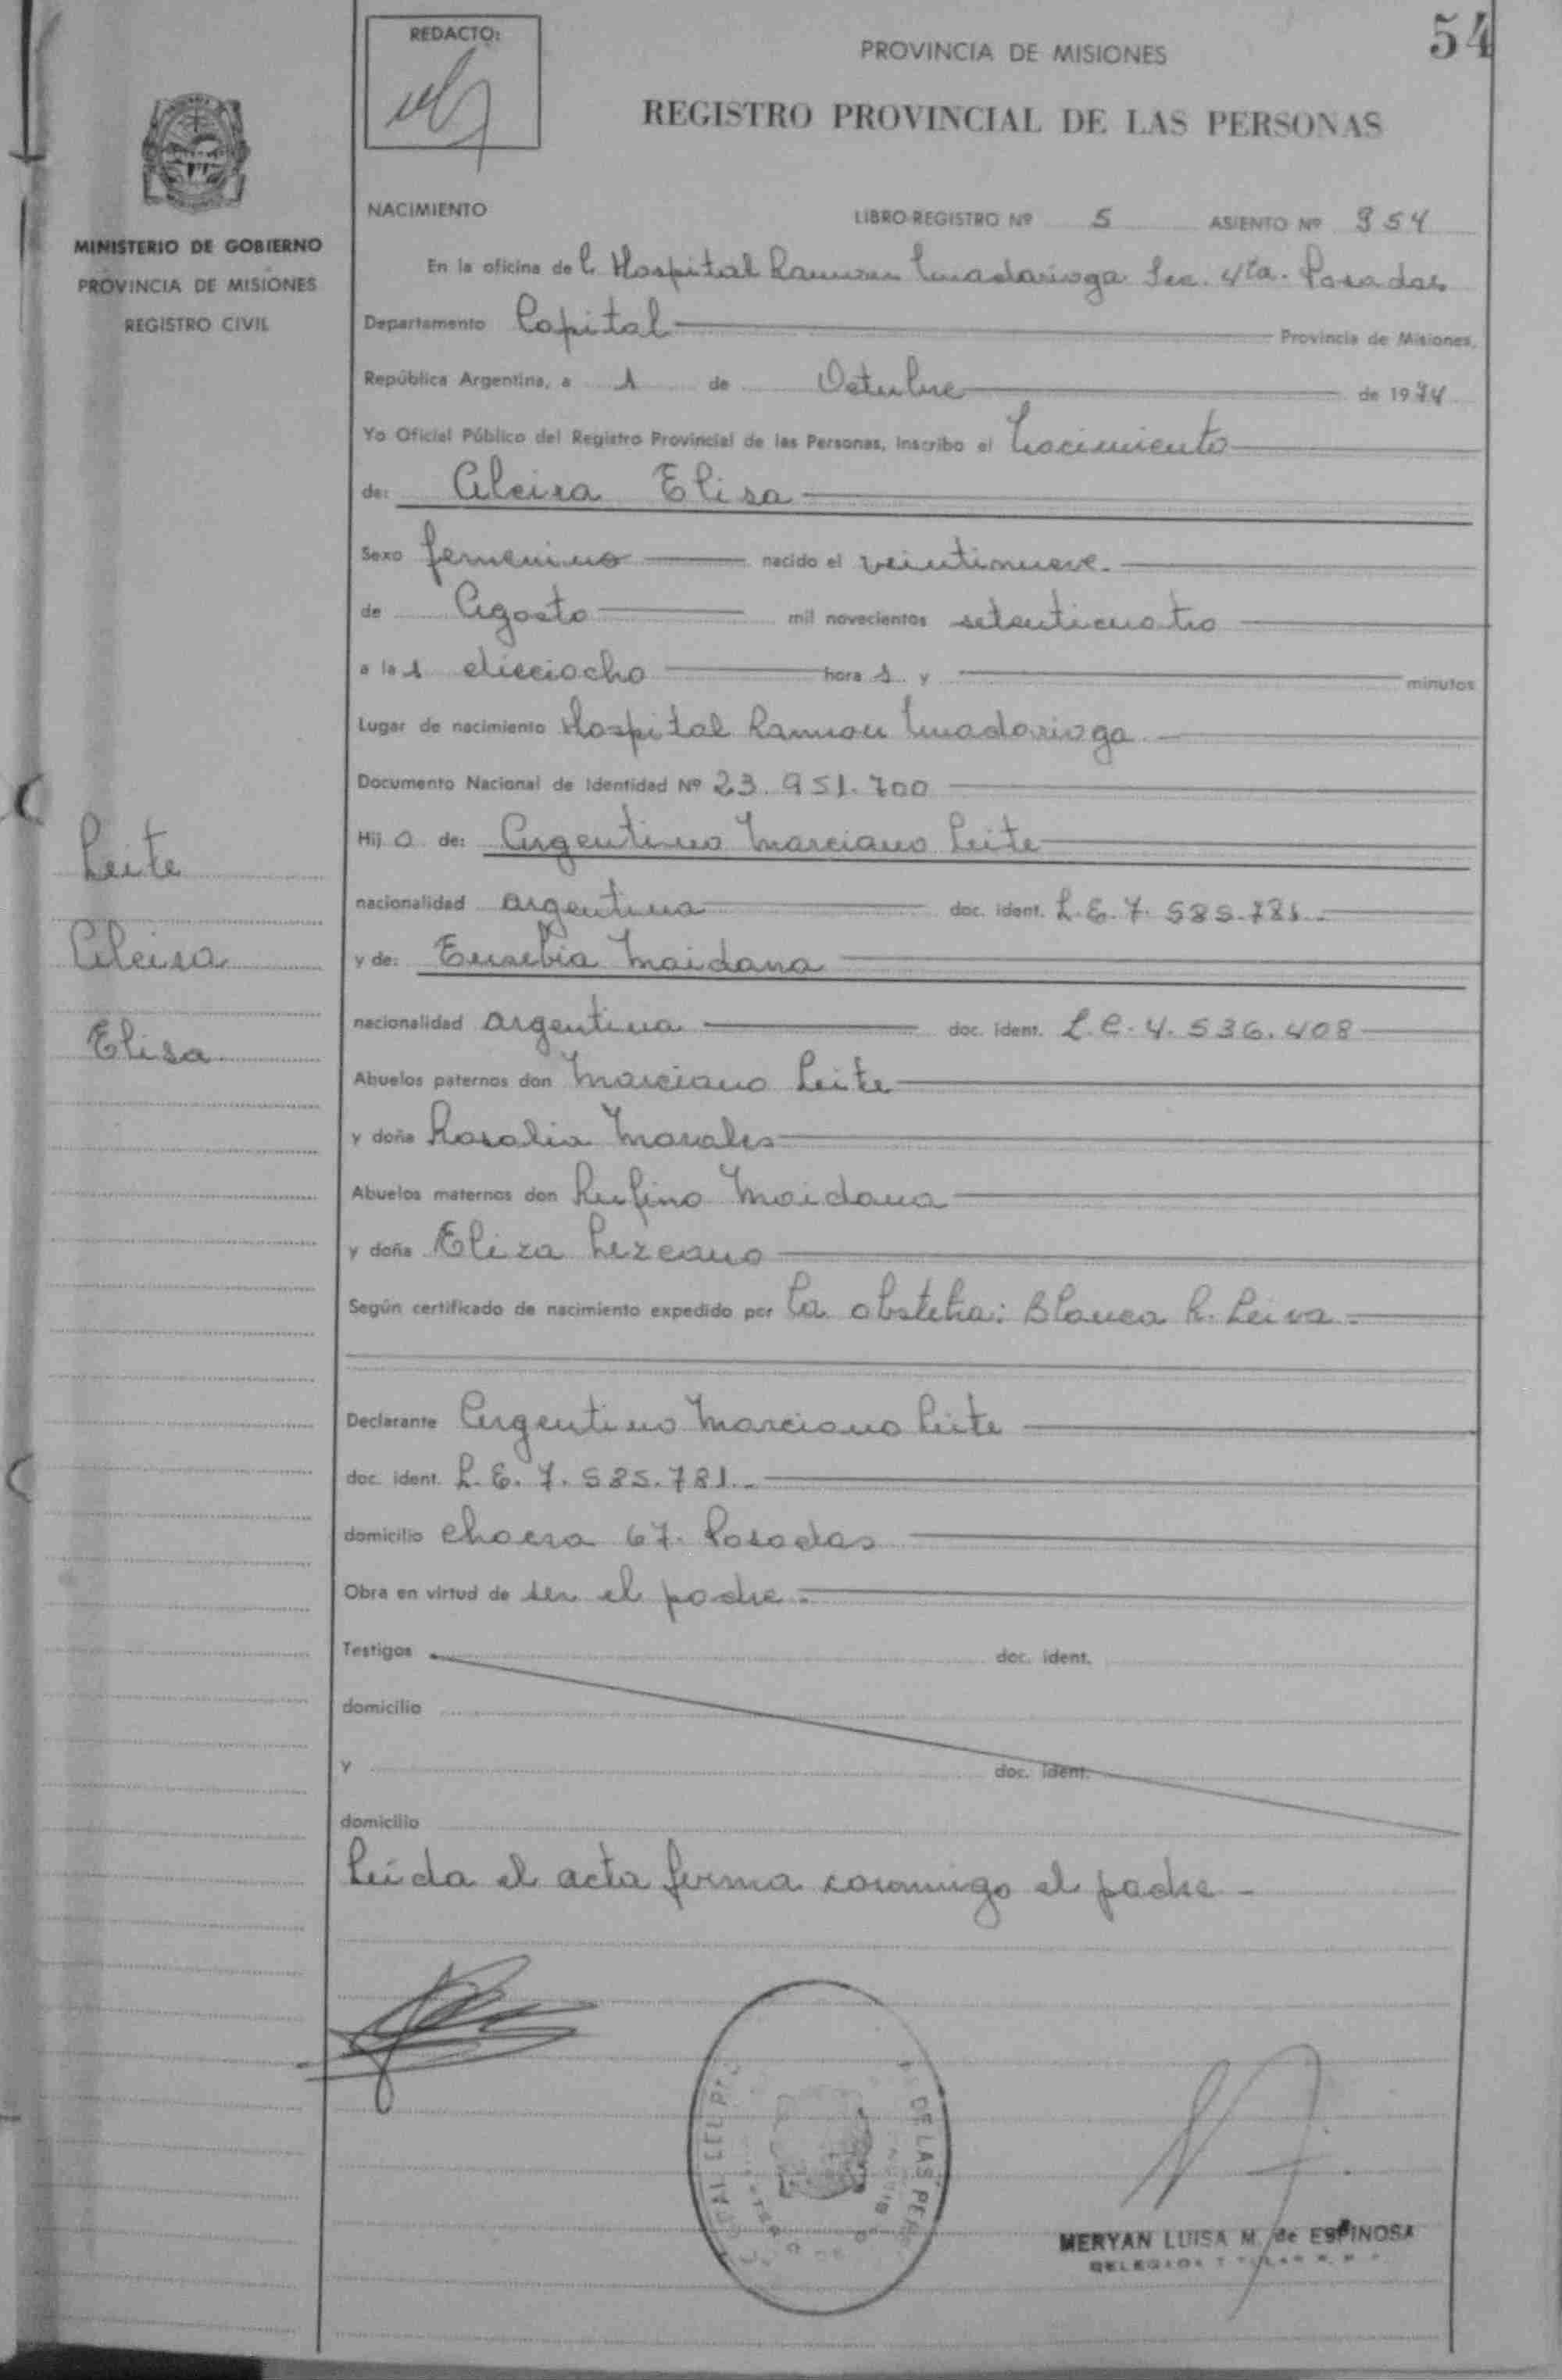 54
REDACTO:
PROVINCIA DE MISIONES
REGISTRO PROVINCIAL DE LAS PERSONAS
MINISTERIO DE GOBIERNO
PROVINCIA DE MISIONES
REGISTRO CIVIL
NACIMIENTO LIBRO-REGISTRO Nº 5 ASIENTO Nº 954
En la oficina del Hospital Ramon Madariaga Sec. 4ta. Posadas
Departamento Capital Provincia de Misiones,
República Argentina, a 1 de Octubre de 1974
Yo Oficial Público del Registro Provincial de las Personas, Inscribo el Nacimiento
de: Alcira Elisa
Sexo femenino nacido el veintinueve.
de Agosto mil novecientos setenticuatro
a las dieciocho horas y minutos
Lugar de nacimiento Hospital Ramon Madariaga
Documento Nacional de Identidad Nº 23.951.700
Hijo de: Argentino Marciano Leite
nacionalidad argentina doc. ident. L.E. 7.585.781.
y de: Eusebia Maidana
nacionalidad argentina doc. ident. L.C. 4.536.408
Abuelos paternos don Marciano Leite
y doña Rosalia Morales
Abuelos maternos don Rufino Maidana
y doña Eliza Lezcano
Según certificado de nacimiento expedido por la obstetra: Blanca R. Leiva.
Declarante Argentino Marciano Leite
doc. ident. L.E. 7.585.781.
domicilio chacra 67. Posadas
Obra en virtud de ser el padre.
Testigos doc. ident.
domicilio
y doc. ident.
domicilio
Leida el acta firma conmigo el padre -
Leite
Alcira
Elisa
DE LAS PER
MERYAN LUISA M. de ESPINOSA